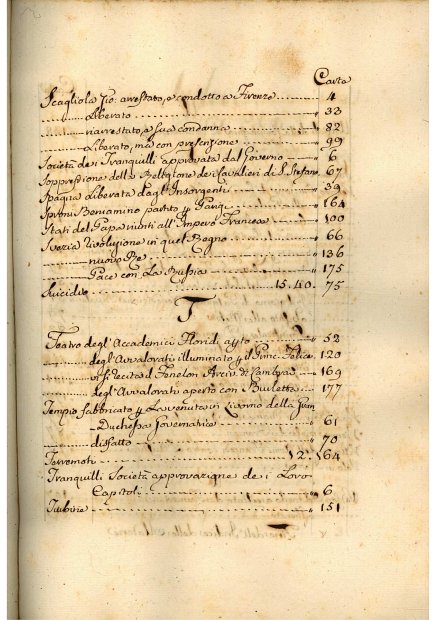 Carta
Scagliola Gio: arrestato, e condotto a Firenze 4
Liberato " 33
riarrestato, e sua condanna " 82
Liberato, ma con prefenzione " 99
Società dei Tranquilli approvata dal Governo " 6
Soppressione della Religione dei Cavalieri di S. Stefano " 67
Spagna Liberata dagl' Insorgenti " 39
Sproni Beniamino partito p Parigi " 164
Stati del Papa riuniti all' Impero Francese " 100
Svezia Rivoluzione in quel Regno " 66
nuovo Re " 136
Pace con La Russia " 175
Suicidio 15. 40. 75
T
Teatro degl' Accademici Floridi " 52
degl' Avvalorati illuminato p il Princ. Felice " 120
vi si recita il Fenelon Arciv. di Cambrai " 169
degl' Avvalorati aperto con " 177
Tempio fabbricato p La venuta in Livorno della Gran
Duchessa " 61
disfatto " 70
Terremoti 12. 164
Tranquilli Società approvazione dei Loro
Capitoli " 6
" 151